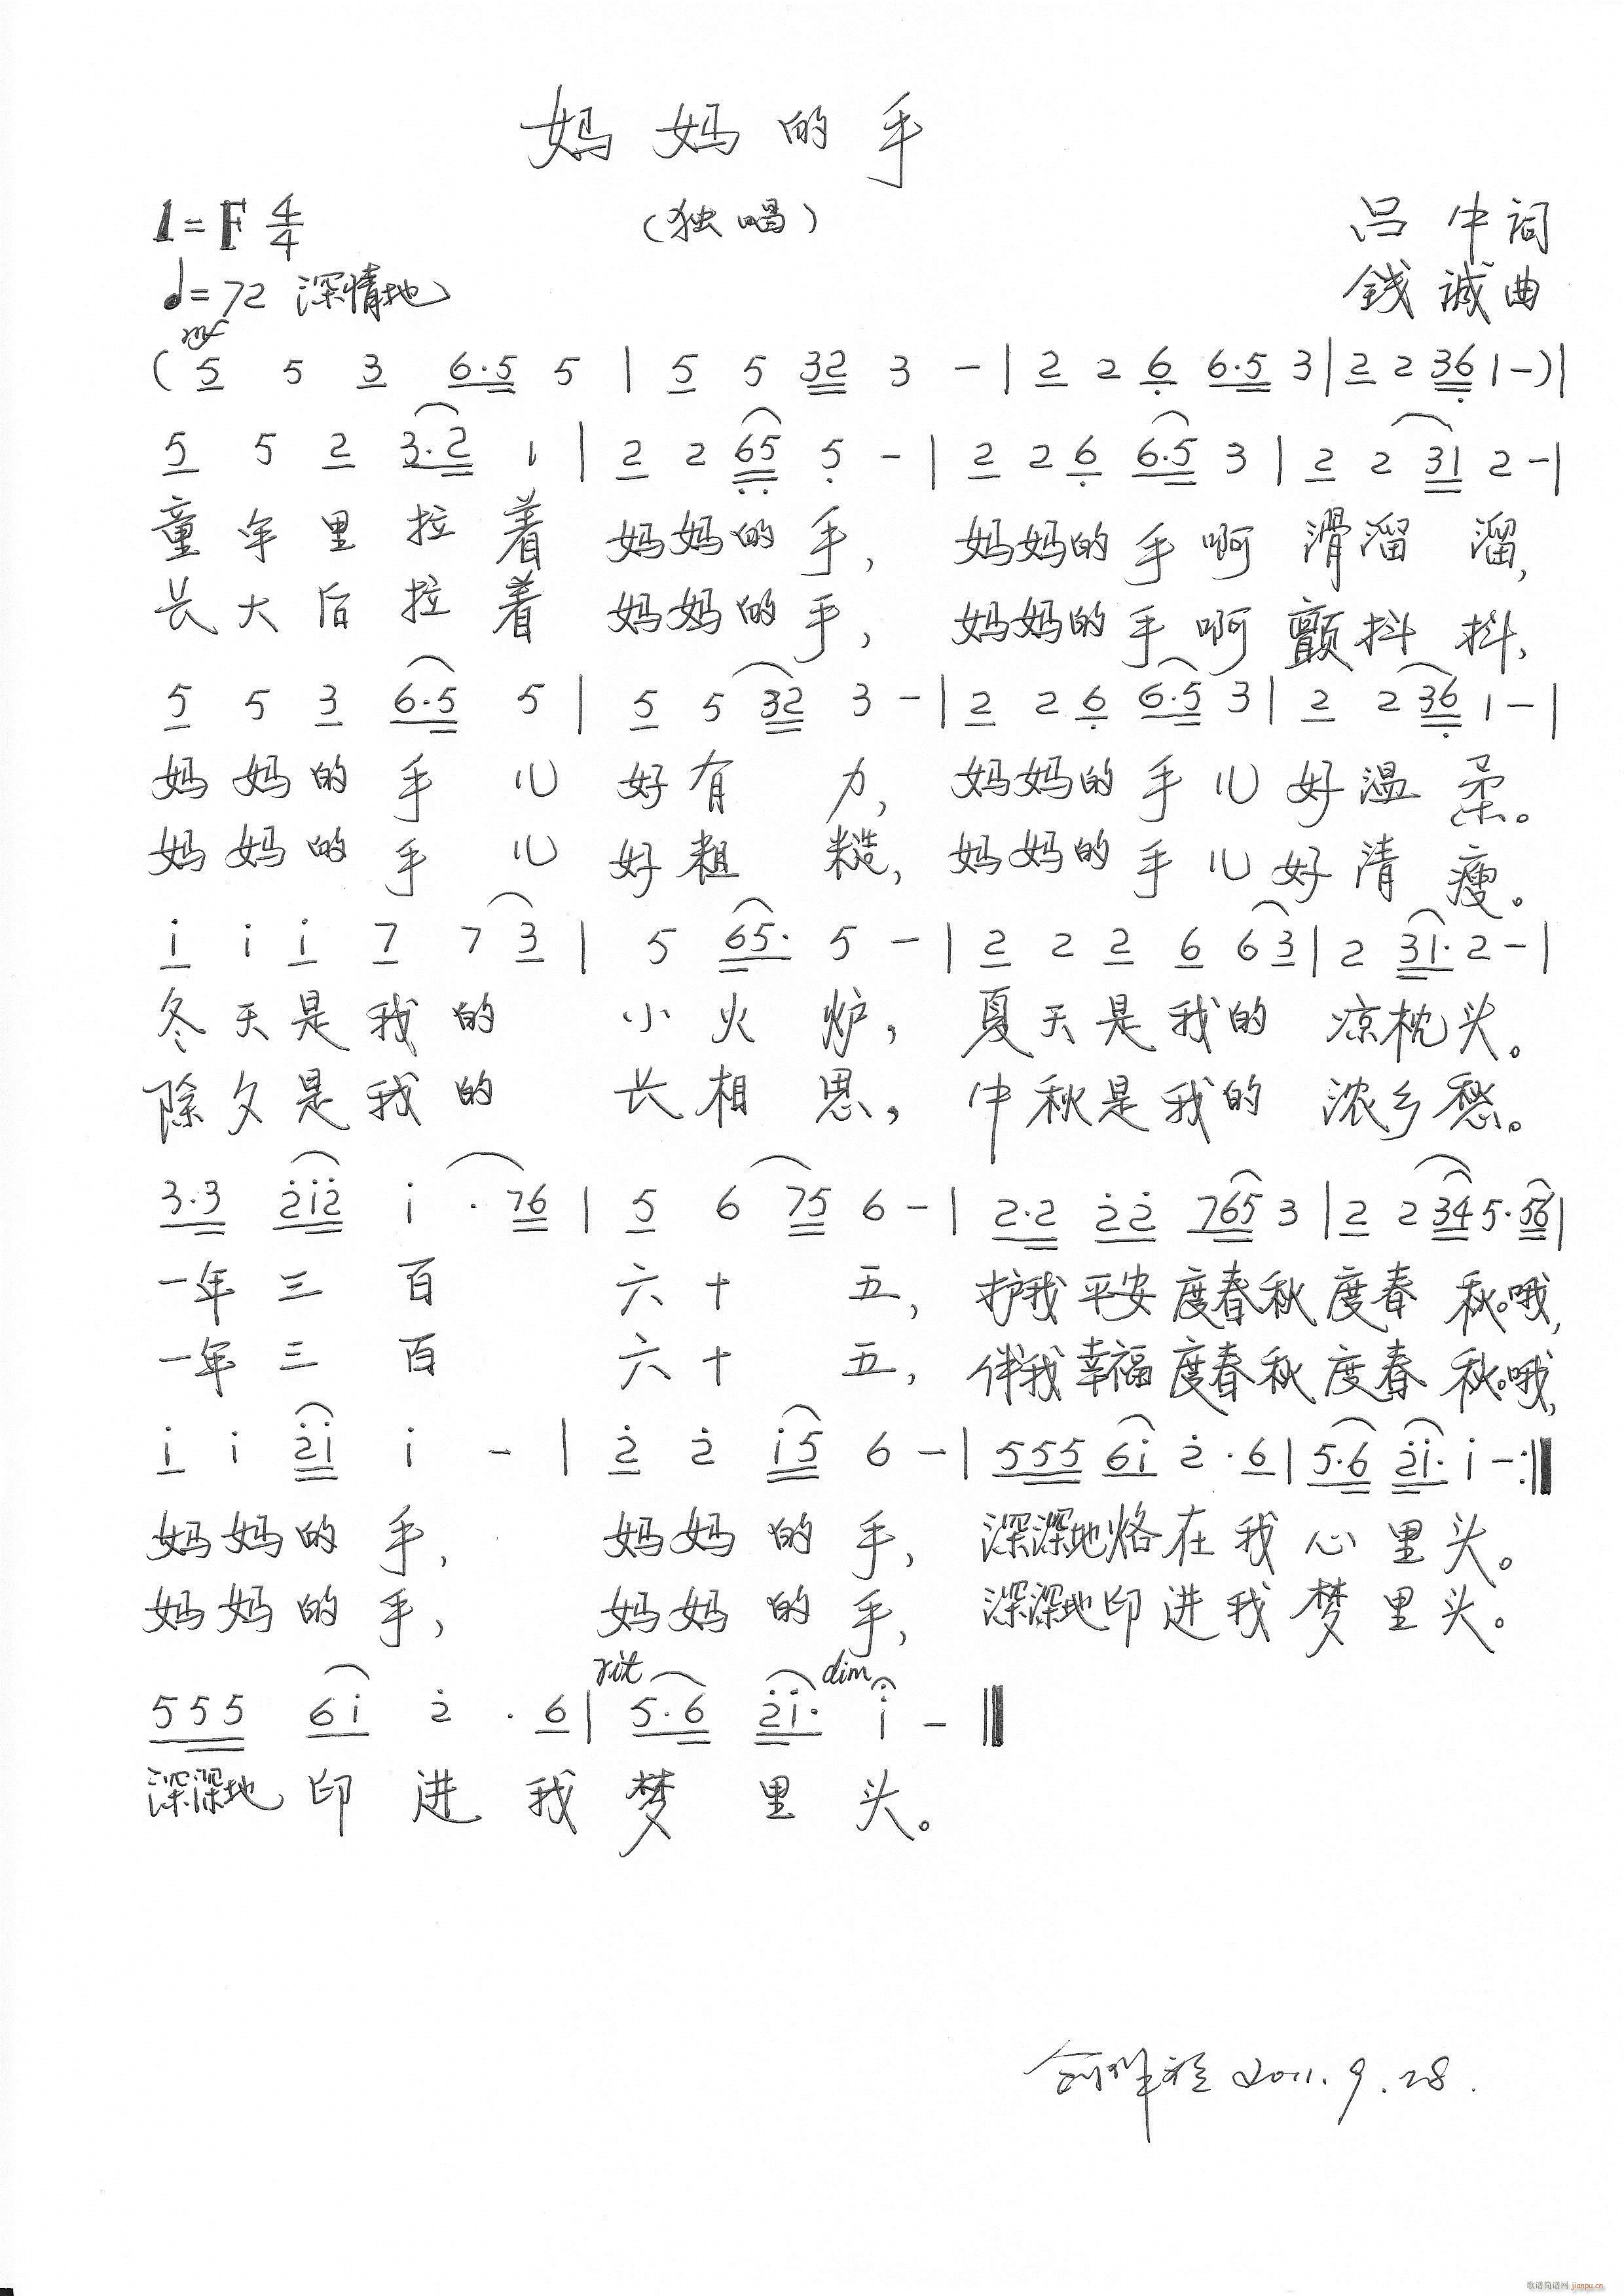 妈妈的手
1=F 4/4 （独唱） 吕中词
♩=72 深情地 钱诚曲
mf
( 5 5 3 6·5 5 | 5 5 32 3 - | 2 2 6 6·5 3 | 2 2 36 1 - ) |
5 5 2 3·2 1 | 2 2 65 5 - | 2 2 6 6·5 3 | 2 2 31 2 - |
童年里拉着 妈妈的手， 妈妈的手啊 滑溜溜，
长大后拉着 妈妈的手， 妈妈的手啊 颤抖抖，
5 5 3 6·5 5 | 5 5 32 3 - | 2 2 6 6·5 3 | 2 2 36 1 - |
妈妈的手儿 好有力， 妈妈的手儿 好温柔。
妈妈的手儿 好粗糙， 妈妈的手儿 好清瘦。
i i i 7 7 3 | 5 65· 5 - | 2 2 2 6 6 3 | 2 31· 2 - |
冬天是我的 小火炉， 夏天是我的 凉枕头。
除夕是我的 长相思， 中秋是我的 浓乡愁。
3·3 2̇i2̇ i · 76 | 5 6 75 6 - | 2·2 2̇2̇ 765 3 | 2 2 34 5·56 |
一年三百 六十五， 护我平安度春秋 度春秋。哦，
一年三百 六十五， 伴我幸福度春秋 度春秋。哦，
i i 2̇i i - | 2̇ 2̇ i5 6 - | 555 6i 2̇·6 | 5·6 2̇i· i - :||
妈妈的手， 妈妈的手， 深深地烙在我心里头。
妈妈的手， 妈妈的手， 深深地印进我梦里头。
rit dim
555 6i 2̇ · 6 | 5·6 2̇i· i - ||
深深地印进我梦里头。
2011.9.28.
歌谱简谱网 jianpu.cn